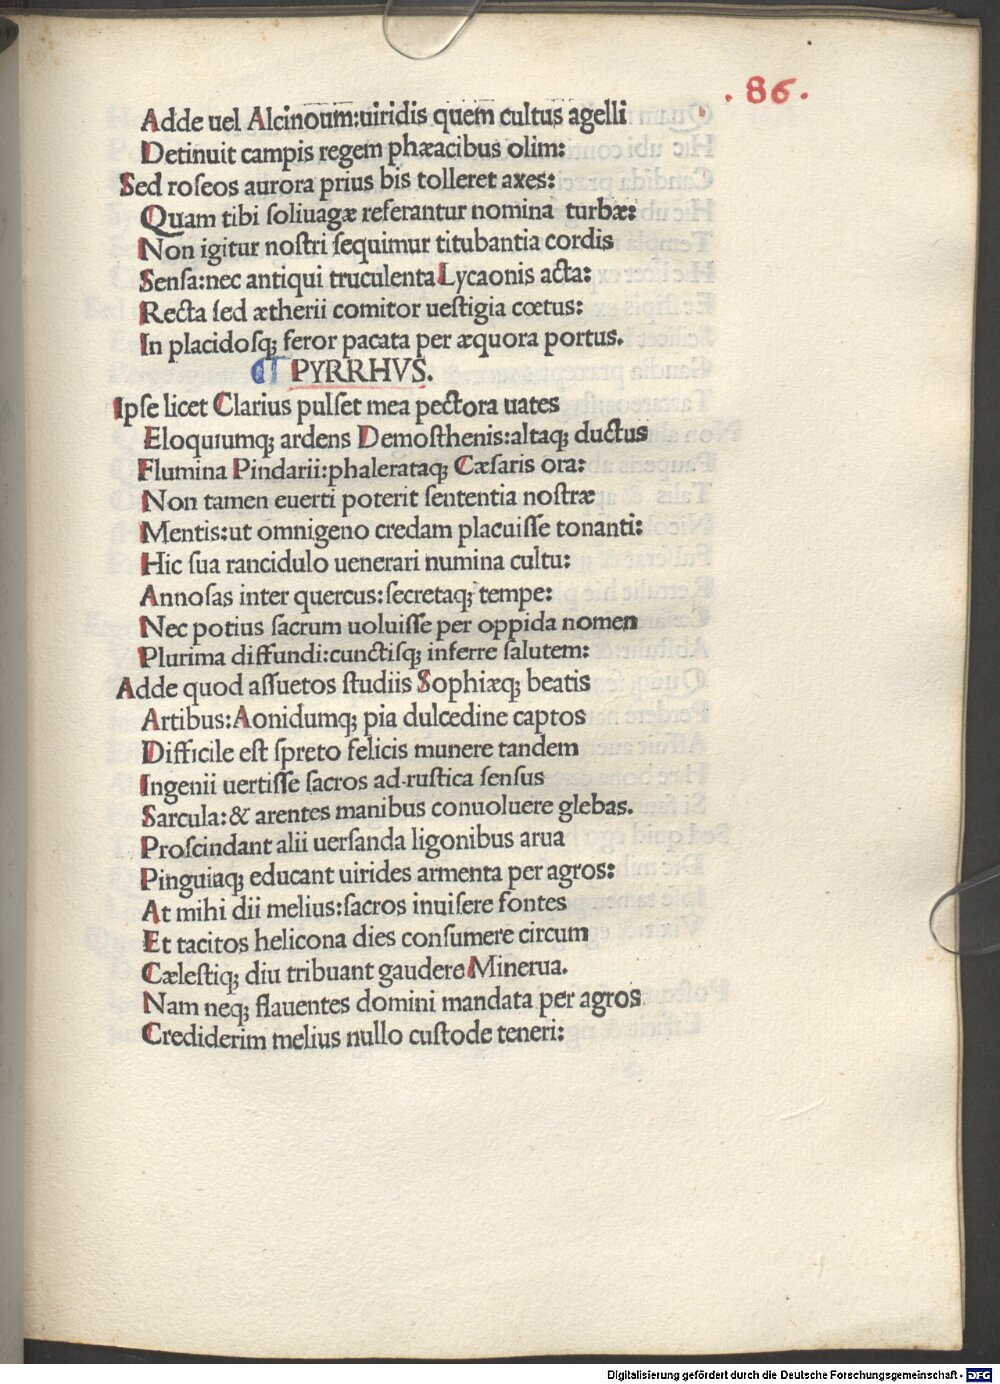 . 86 .
Adde uel Alcinoum:uiridis quem cultus agelli
Detinuit campis regem phæacibus olim:
Sed roſeos aurora prius bis tolleret axes:
Quam tibi ſoliuagæ referantur nomina turbæ:
Non igitur noſtri ſequimur titubantia cordis
Senſa:nec antiqui truculenta Lycaonis acta:
Recta ſed ætherii comitor ueſtigia cœtus:
In placidoſqꝫ feror pacata per æquora portus.
PYRRHVS.
Ipſe licet Clarius pulſet mea pectora uates
Eloquiumqꝫ ardens Demoſthenis:altaqꝫ ductus
Flumina Pindarii:phalerataqꝫ Cæſaris ora:
Non tamen euerti poterit ſententia noſtræ
Mentis:ut omnigeno credam placuiſſe tonanti:
Hic ſua rancidulo uenerari numina cultu:
Annoſas inter quercus:ſecretaqꝫ tempe:
Nec potius ſacrum uoluiſſe per oppida nomen
Plurima diffundi:cunctiſqꝫ inferre ſalutem:
Adde quod aſſuetos ſtudiis Sophiæqꝫ beatis
Artibus:Aonidumqꝫ pia dulcedine captos
Difficile eſt ſpreto felicis munere tandem
Ingenii uertiſſe ſacros ad ruſtica ſenſus
Sarcula:& arentes manibus conuoluere glebas.
Proſcindant alii uerſanda ligonibus arua
Pinguiaqꝫ educant uirides armenta per agros:
At mihi dii melius:ſacros inuiſere fontes
Et tacitos helicona dies conſumere circum
Cæleſtiqꝫ diu tribuant gaudere Minerua.
Nam neqꝫ flauentes domini mandata per agros
Crediderim melius nullo cuſtode teneri:
Digitalisierung gefördert durch die Deutsche Forschungsgemeinschaft - DFG